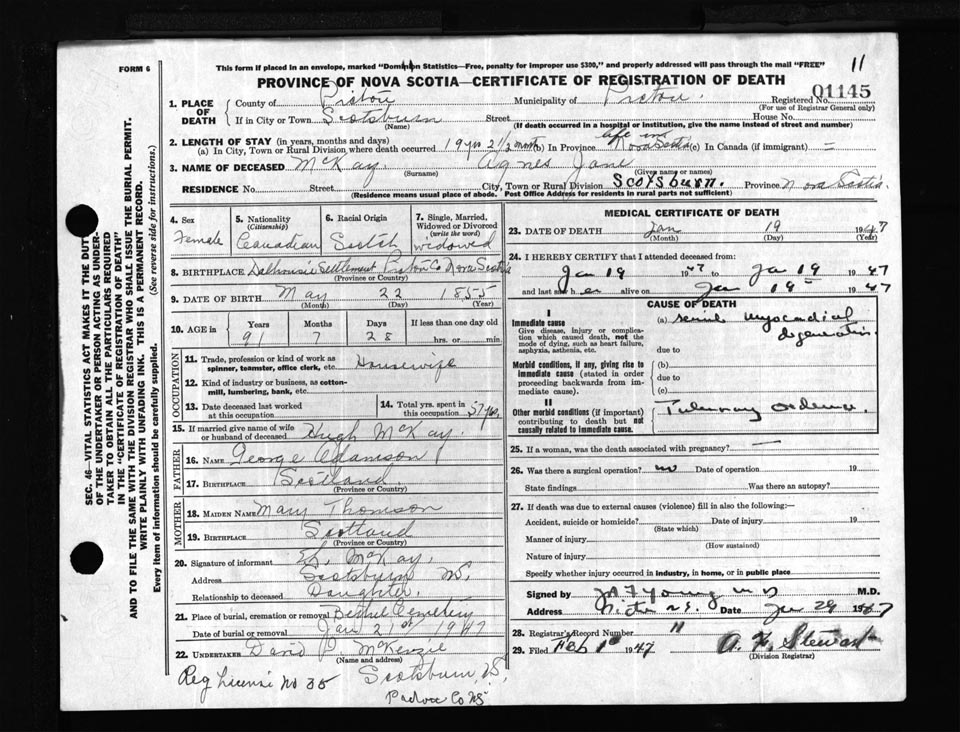 FORM 6
This form if placed in an envelope, marked "Dominion Statistics—Free, penalty for improper use $300," and properly addressed will pass through the mail "FREE"
11
PROVINCE OF NOVA SCOTIA—CERTIFICATE OF REGISTRATION OF DEATH
01145
1. PLACE OF DEATH
County of Pictou Municipality of Pictou. Registered No.
(For use of Registrar General only)
If in City or Town Scotsburn Street House No.
(Name) (If death occurred in a hospital or institution, give the name instead of street and number)
2. LENGTH OF STAY (in years, months and days)
(a) In City, Town or Rural Division where death occurred 19 yrs 2 1/2 month (b) In Province life in Nova Scotia (c) In Canada (if immigrant) —
3. NAME OF DECEASED McKay, Agnes Jane
(Surname) (Given name or names)
RESIDENCE No. Street City, Town or Rural Division Scotsburn. Province Nova Scotia
(Residence means usual place of abode. Post Office Address for residents in rural parts not sufficient)
SEC. 46—VITAL STATISTICS ACT MAKES IT THE DUTY
OF THE UNDERTAKER OR PERSON ACTING AS UNDERTAKER TO OBTAIN ALL THE PARTICULARS REQUIRED
IN THE "CERTIFICATE OF REGISTRATION OF DEATH"
AND TO FILE THE SAME WITH THE DIVISION REGISTRAR WHO SHALL ISSUE THE BURIAL PERMIT.
WRITE PLAINLY WITH UNFADING INK. THIS IS A PERMANENT RECORD.
Every item of information should be carefully supplied. (See reverse side for instructions.)
4. Sex
Female
5. Nationality
(Citizenship)
Canadian
6. Racial Origin
Scotch
7. Single, Married, Widowed or Divorced
(write the word)
widowed
8. BIRTHPLACE Dalhousie Settlement Pictou Co Nova Scotia
(Province or Country)
9. DATE OF BIRTH May 22 1855
(Month) (Day) (Year)
10. AGE in Years Months Days If less than one day old
91 7 28 hrs. or min.
OCCUPATION
11. Trade, profession or kind of work as spinner, teamster, office clerk, etc. Housewife
12. Kind of industry or business, as cotton-mill, lumbering, bank, etc.
13. Date deceased last worked at this occupation
14. Total yrs. spent in this occupation 57 yrs.
15. If married give name of wife or husband of deceased Hugh McKay.
FATHER
16. NAME George Adamson
17. BIRTHPLACE Scotland.
(Province or Country)
MOTHER
18. MAIDEN NAME Mary Thomson
19. BIRTHPLACE Scotland
(Province or Country)
20. Signature of informant McKay.
Address Scotsburn NS.
Relationship to deceased Daughter.
21. Place of burial, cremation or removal Bethel Cemetery
Date of burial or removal Jan 21st 1947
22. UNDERTAKER David P. McKenzie
(Name and address)
Reg License No 35 Scotsburn, NS,
Pictou Co NS
MEDICAL CERTIFICATE OF DEATH
23. DATE OF DEATH Jan 19 1947
(Month) (Day) (Year)
24. I HEREBY CERTIFY that I attended deceased from:
Jan 19 1947 to Jan 19 1947
and last saw her alive on Jan 19 1947
CAUSE OF DEATH
I
Immediate cause
Give disease, injury or complication which caused death, not the mode of dying, such as heart failure, asphyxia, asthenia, etc.
(a) Senile Myocardial degeneration.
due to
Morbid conditions, if any, giving rise to immediate cause (stated in order proceeding backwards from immediate cause).
(b)
due to
(c)
II
Other morbid conditions (if important) contributing to death but not causally related to immediate cause.
Pulmonary oedema.
25. If a woman, was the death associated with pregnancy? —
26. Was there a surgical operation? no Date of operation 19
State findings Was there an autopsy?
27. If death was due to external causes (violence) fill in also the following:—
Accident, suicide or homicide? Date of injury 19
(State which)
Manner of injury
(How sustained)
Nature of injury
Specify whether injury occurred in industry, in home, or in public place
Signed by Young M D M.D.
Address Pictou N.S. Date Jan 29 1947
28. Registrar's Record Number 11
29. Filed Feb 1st 1947 Stewart
(Division Registrar)